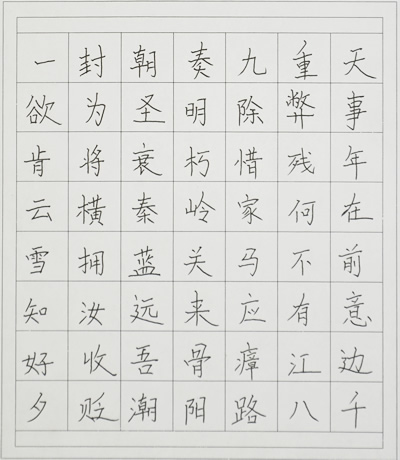 一封朝奏九重天
欲为圣明除弊事
肯将衰朽惜残年
云横秦岭家何在
雪拥蓝关马不前
知汝远来应有意
好收吾骨瘴江边
夕贬潮阳路八千